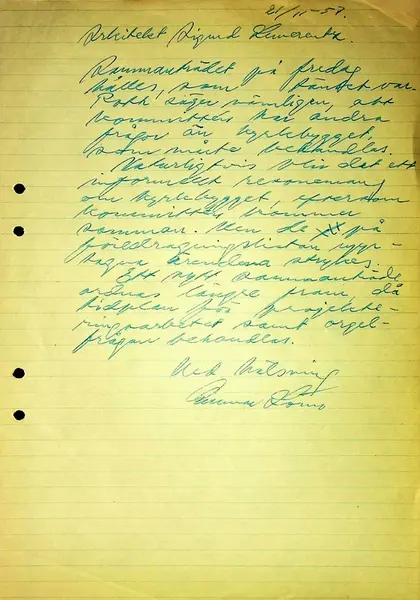 21/11-57.
Arkitekt Sigurd Lewerentz.
Sammanträdet på fredag
hålles, som tänkt var.
Roth säger nämligen, att
kommittén har andra
frågor än kyrkobygget,
som måste behandlas.
Naturligtvis blir det ett
informellt resonemang
om kyrkobygget, eftersom
kommittén kommer
samman. Men de på
föredragningslistan upp-
tagna ärendena strykes.
Ett nytt sammanträde
ordnas längre fram, då
tidplan för projekte-
ringsarbetet samt orgel-
frågan behandlas.
Med hälsning
Gunnar